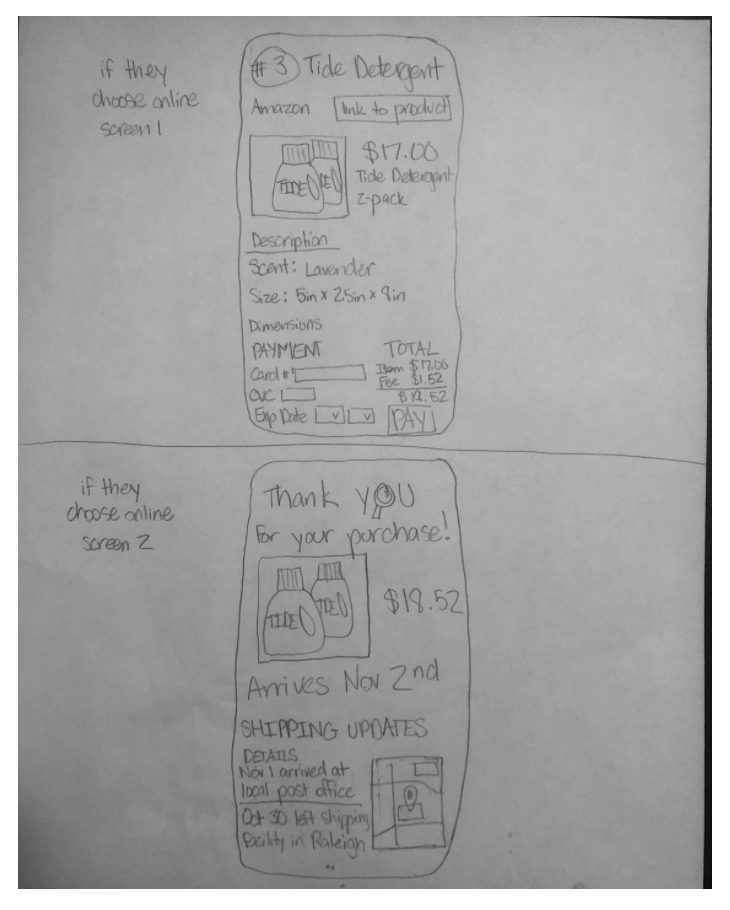 if they
choose online
screen 1
#3 Tide Detergent
Amazon link to product
TIDE
$17.00
Tide Detergent
2-pack
Description
Scent: Lavender
Size: 5in x 2.5in x 9in
Dimensions
PAYMENT
TOTAL
Card #
Item $17.00
Fee $1.52
CVC
$18.52
Exp Date
PAY
if they
choose online
screen 2
Thank YOU
For your purchase!
TIDE
TIDE
$18.52
Arrives Nov 2nd
SHIPPING UPDATES
DETAILS
Nov 1 arrived at
local post office
Oct 30 left shipping
facility in Raleigh